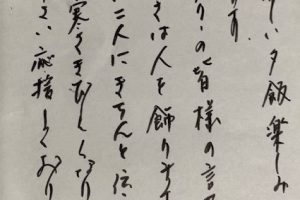 しい夕飯楽しみ
ます
り…の皆様の言
さは人を飾ります
に二人にきちんと伝
寒さきびしくなり
さい応援しており